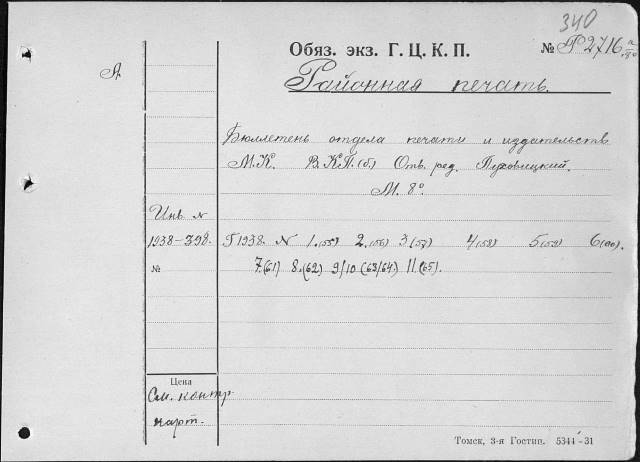 340
Обяз. экз. Г. Ц. К. П. № P2716
А
Районная печать.
Бюллетень отдела печати и издательств
М.К. В.К.П.(б) Отв. ред.
М. 8°
Инв. №
1938-398. Г 1938. N 1.(55) 2.(56) 3(57) 4(58) 5(59) 6(60).
№ 7(61) 8.(62) 9/10 (63/64) 11.(65).
Цена
См. контр
карт.
Томск, 3-я Гостип. 5344-31